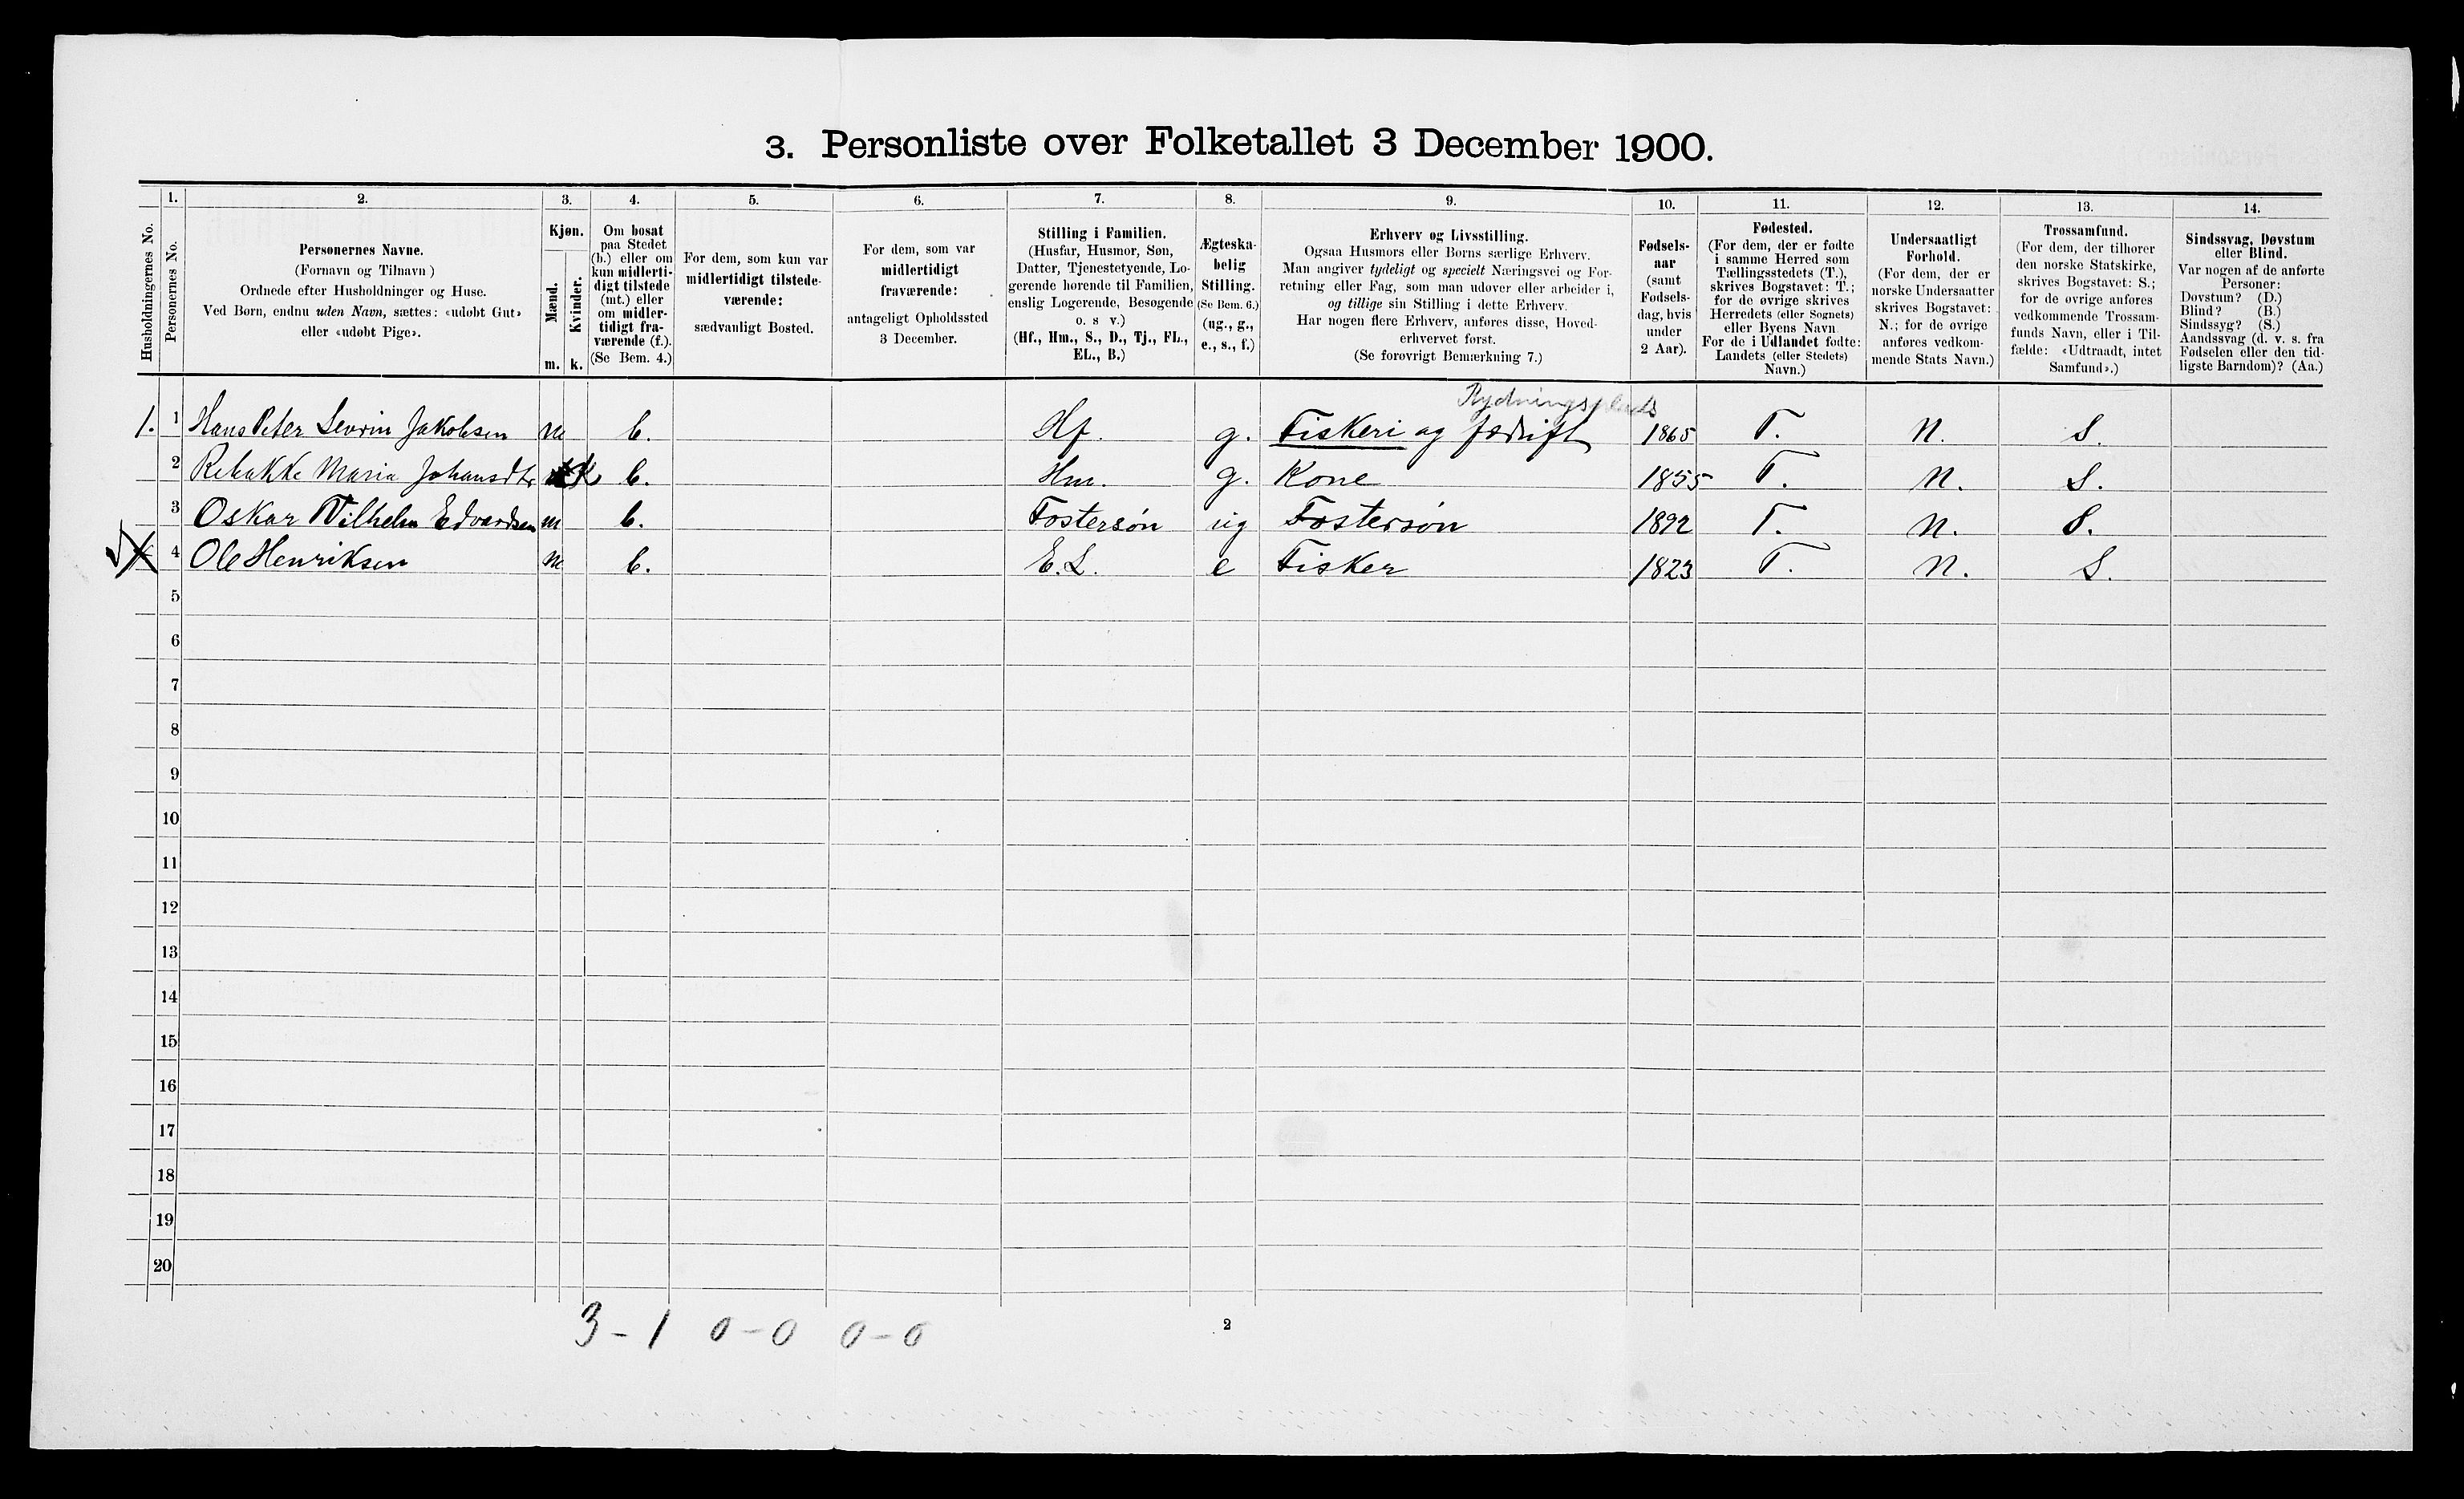 3. Personliste over Folketallet 3 December 1900.
1. 2. 3. 4. 5. 6. 7. 8. 9. 10. 11. 12. 13. 14.
Husholdningernes No.
Personernes No.
Personernes Navne.
(Fornavn og Tilnavn)
Ordnede efter Husholdninger og Huse.
Ved Børn, endnu uden Navn, sættes: «udøbt Gut»
eller «udøbt Pige».
Kjøn.
Mænd.
Kvinder.
m. k.
Om bosat
paa Stedet
(b.) eller om
kun midlerti-
digt tilstede
(mt.) eller
om midler-
tidigt fra-
værende (f.).
(Se Bem. 4.)
For dem, som kun var
midlertidigt tilstede-
værende:
sædvanligt Bosted.
For dem, som var
midlertidigt
fraværende:
antageligt Opholdssted
3 December.
Stilling i Familien.
(Husfar, Husmor, Søn,
Datter, Tjenestetyende, Lo-
gerende hørende til Familien,
enslig Logerende, Besøgende
o. s v.)
(Hf., Hm., S., D., Tj., FL.,
EL., B.)
Ægteska-
belig
Stilling.
(Se Bem. 6.)
(ug., g.,
e., s., f.)
Erhverv og Livsstilling.
Ogsaa Husmors eller Børns særlige Erhverv.
Man angiver tydeligt og specielt Næringsvei og For-
retning eller Fag, som man udøver eller arbeider i,
og tillige sin Stilling i dette Erhverv.
Har nogen flere Erhverv, anføres disse, Hoved-
erhvervet først.
(Se forøvrigt Bemærkning 7.)
Fødsels-
aar
(samt
Fødsels-
dag, hvis
under
2 Aar).
Fødested.
(For dem, der er fødte
i samme Herred som
Tællingsstedets (T.),
skrives Bogstavet: T.;
for de øvrige skrives
Herredets (eller Sognets)
eller Byens Navn
For de i Udlandet fødte:
Landets (eller Stedets)
Navn.)
Undersaatligt
Forhold.
(For dem, der er
norske Undersaatter
skrives Bogstavet:
N.; for de øvrige
anføres vedkom-
mende Stats Navn.)
Trossamfund.
(For dem, der tilhører
den norske Statskirke,
skrives Bogstavet: S.;
for de øvrige anføres
vedkommende Trossam-
funds Navn, eller i Til-
fælde: «Udtraadt, intet
Samfund».)
Sindssvag, Døvstum
eller Blind.
Var nogen af de anførte
Personer:
Døvstum? (D.)
Blind? (B.)
Sindssyg? (S.)
Aandssvag (d. v. s. fra
Fødselen eller den tid-
ligste Barndom)? (Aa.)
Rydningsplads
1. 1 Hans Peter Sevrin Jakobsen m b. Hf. g. Fiskeri og fædrift 1865 T. N. S.
2 Rebakke Maria Johansdtr k b. Hm. g. Kone 1855 T. N. S.
3 Oskar Vilhelm Edvardsen m b. Fostersøn ug Fostersøn 1892 T. N. S.
4 Ole Henriksen m b. E.L. e Fisker 1823 T. N. S.
5
6
7
8
9
10
11
12
13
14
15
16
17
18
19
20
3-1 0-0 0-0
2